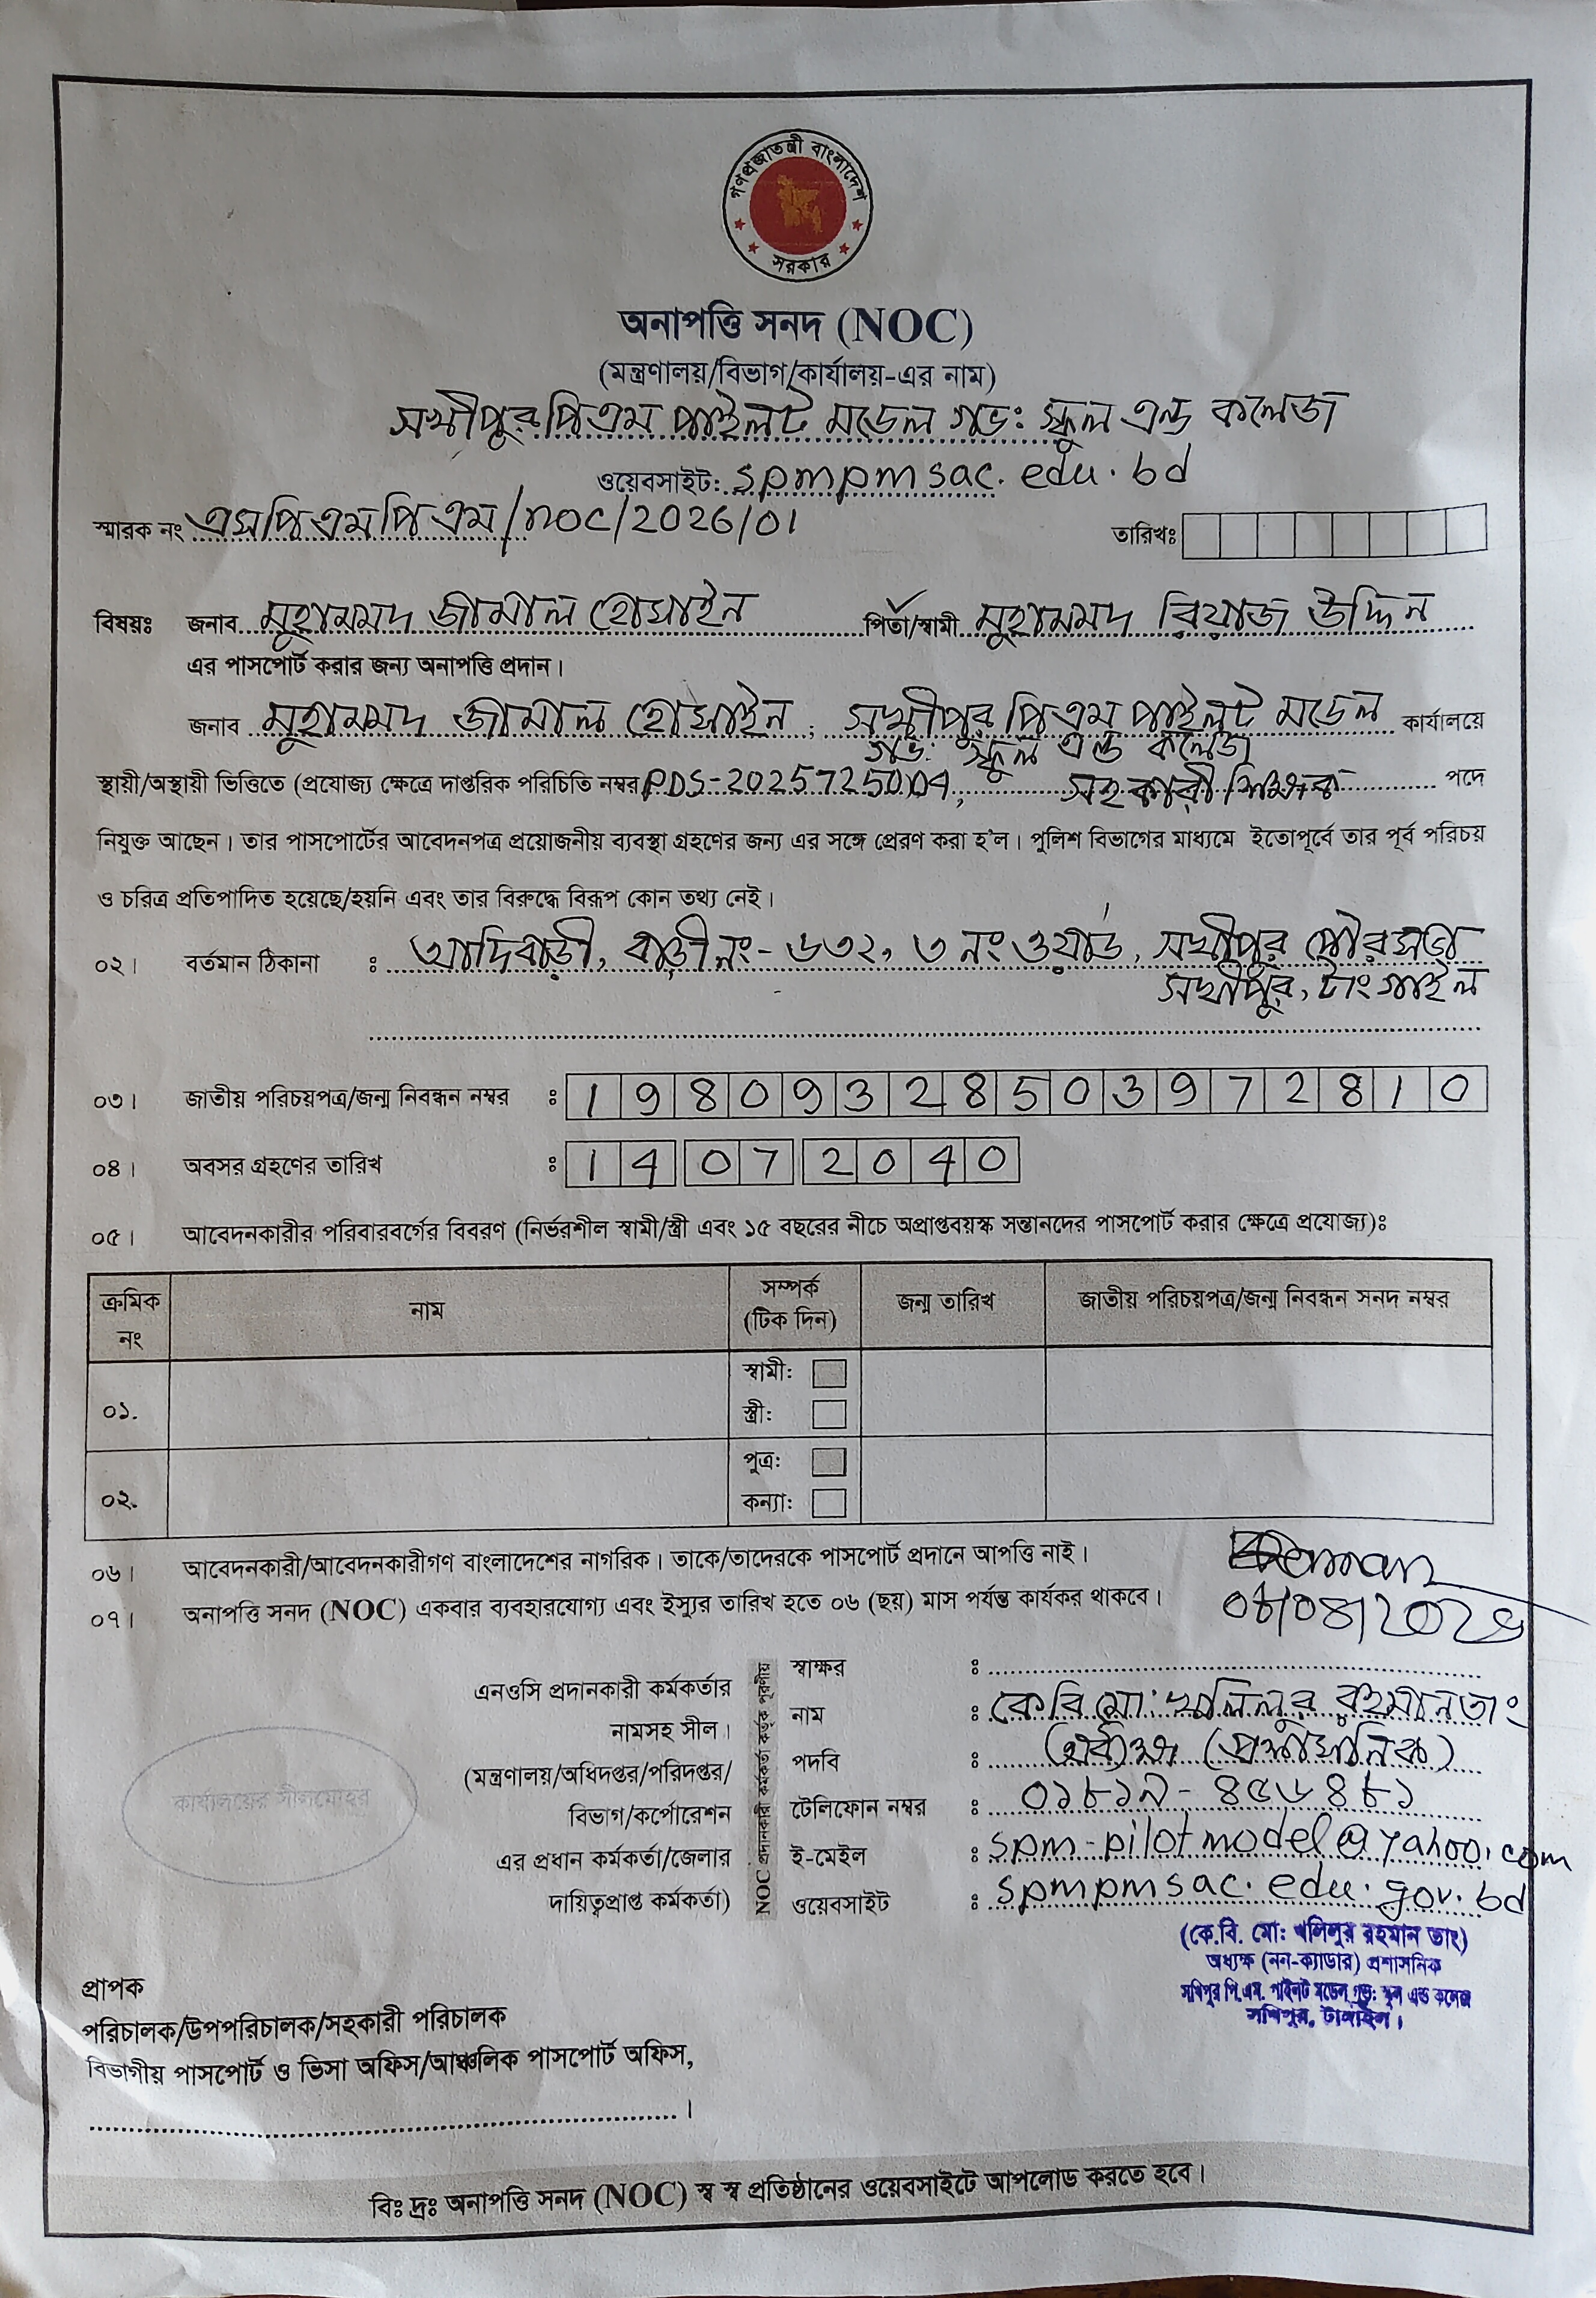 গণপ্রজাতন্ত্রী বাংলাদেশ
সরকার
অনাপত্তি সনদ (NOC)
(মন্ত্রণালয়/বিভাগ/কার্যালয়-এর নাম)
সখীপুর পিএম পাইলট মডেল গভঃ স্কুল এন্ড কলেজ
ওয়েবসাইট: spmpmsac.edu.bd
স্মারক নং এসপিএমপিএম/noc/2026/01 তারিখঃ
বিষয়ঃ জনাব মুহামমদ জামাল হোসাইন পিতা/স্বামী মুহামমদ রিয়াজ উদ্দিন
এর পাসপোর্ট করার জন্য অনাপত্তি প্রদান।
জনাব মুহামমদ জামাল হোসাইন, সখীপুর পিএম পাইলট মডেল কার্যালয়ে
গভঃ স্কুল এন্ড কলেজ
স্থায়ী/অস্থায়ী ভিত্তিতে (প্রযোজ্য ক্ষেত্রে দাপ্তরিক পরিচিতি নম্বর PDS-2025725004, সহকারী শিক্ষক পদে
নিযুক্ত আছেন। তার পাসপোর্টের আবেদনপত্র প্রয়োজনীয় ব্যবস্থা গ্রহণের জন্য এর সঙ্গে প্রেরণ করা হ'ল। পুলিশ বিভাগের মাধ্যমে ইতোপূর্বে তার পূর্ব পরিচয়
ও চরিত্র প্রতিপাদিত হয়েছে/হয়নি এবং তার বিরুদ্ধে বিরূপ কোন তথ্য নেই।
০২। বর্তমান ঠিকানা : আদিবাড়ী, বাড়ী নং- ৬৩২, ৩ নং ওয়ার্ড, সখীপুর পৌরসভা
সখীপুর, টাংগাইল
০৩। জাতীয় পরিচয়পত্র/জন্ম নিবন্ধন নম্বর : 19809328503972810
০৪। অবসর গ্রহণের তারিখ : 14 07 2040
০৫। আবেদনকারীর পরিবারবর্গের বিবরণ (নির্ভরশীল স্বামী/স্ত্রী এবং ১৫ বছরের নীচে অপ্রাপ্তবয়স্ক সন্তানদের পাসপোর্ট করার ক্ষেত্রে প্রযোজ্য)ঃ
ক্রমিক নং নাম সম্পর্ক (টিক দিন) জন্ম তারিখ জাতীয় পরিচয়পত্র/জন্ম নিবন্ধন সনদ নম্বর
০১. স্বামী:
স্ত্রী:
০২. পুত্র:
কন্যা:
০৬। আবেদনকারী/আবেদনকারীগণ বাংলাদেশের নাগরিক। তাকে/তাদেরকে পাসপোর্ট প্রদানে আপত্তি নাই।
০৭। অনাপত্তি সনদ (NOC) একবার ব্যবহারযোগ্য এবং ইস্যুর তারিখ হতে ০৬ (ছয়) মাস পর্যন্ত কার্যকর থাকবে।
এনওসি প্রদানকারী কর্মকর্তার
নামসহ সীল।
(মন্ত্রণালয়/অধিদপ্তর/পরিদপ্তর/
বিভাগ/কর্পোরেশন
এর প্রধান কর্মকর্তা/জেলার
দায়িত্বপ্রাপ্ত কর্মকর্তা)
কার্যালয়ের সীলমোহর
NOC প্রদানকারী কর্মকর্তা কর্তৃক পূরণীয়
স্বাক্ষর :
নাম : কে বি মো: খলিলুর রহমান তাং
পদবি : অধ্যক্ষ (প্রশাসনিক)
টেলিফোন নম্বর : ০১৮১৯-৪৫৬৪৮১
ই-মেইল : spm-pilotmodel@yahoo.com
ওয়েবসাইট : spmpmsac.edu.gov.bd
(কে.বি. মো: খলিলুর রহমান তাং)
অধ্যক্ষ (নন-ক্যাডার) প্রশাসনিক
সখিপুর পি.এম. পাইলট মডেল গভ: স্কুল এন্ড কলেজ
সখিপুর, টাঙ্গাইল।
প্রাপক
পরিচালক/উপপরিচালক/সহকারী পরিচালক
বিভাগীয় পাসপোর্ট ও ভিসা অফিস/আঞ্চলিক পাসপোর্ট অফিস,
।
বিঃ দ্রঃ অনাপত্তি সনদ (NOC) স্ব স্ব প্রতিষ্ঠানের ওয়েবসাইটে আপলোড করতে হবে।